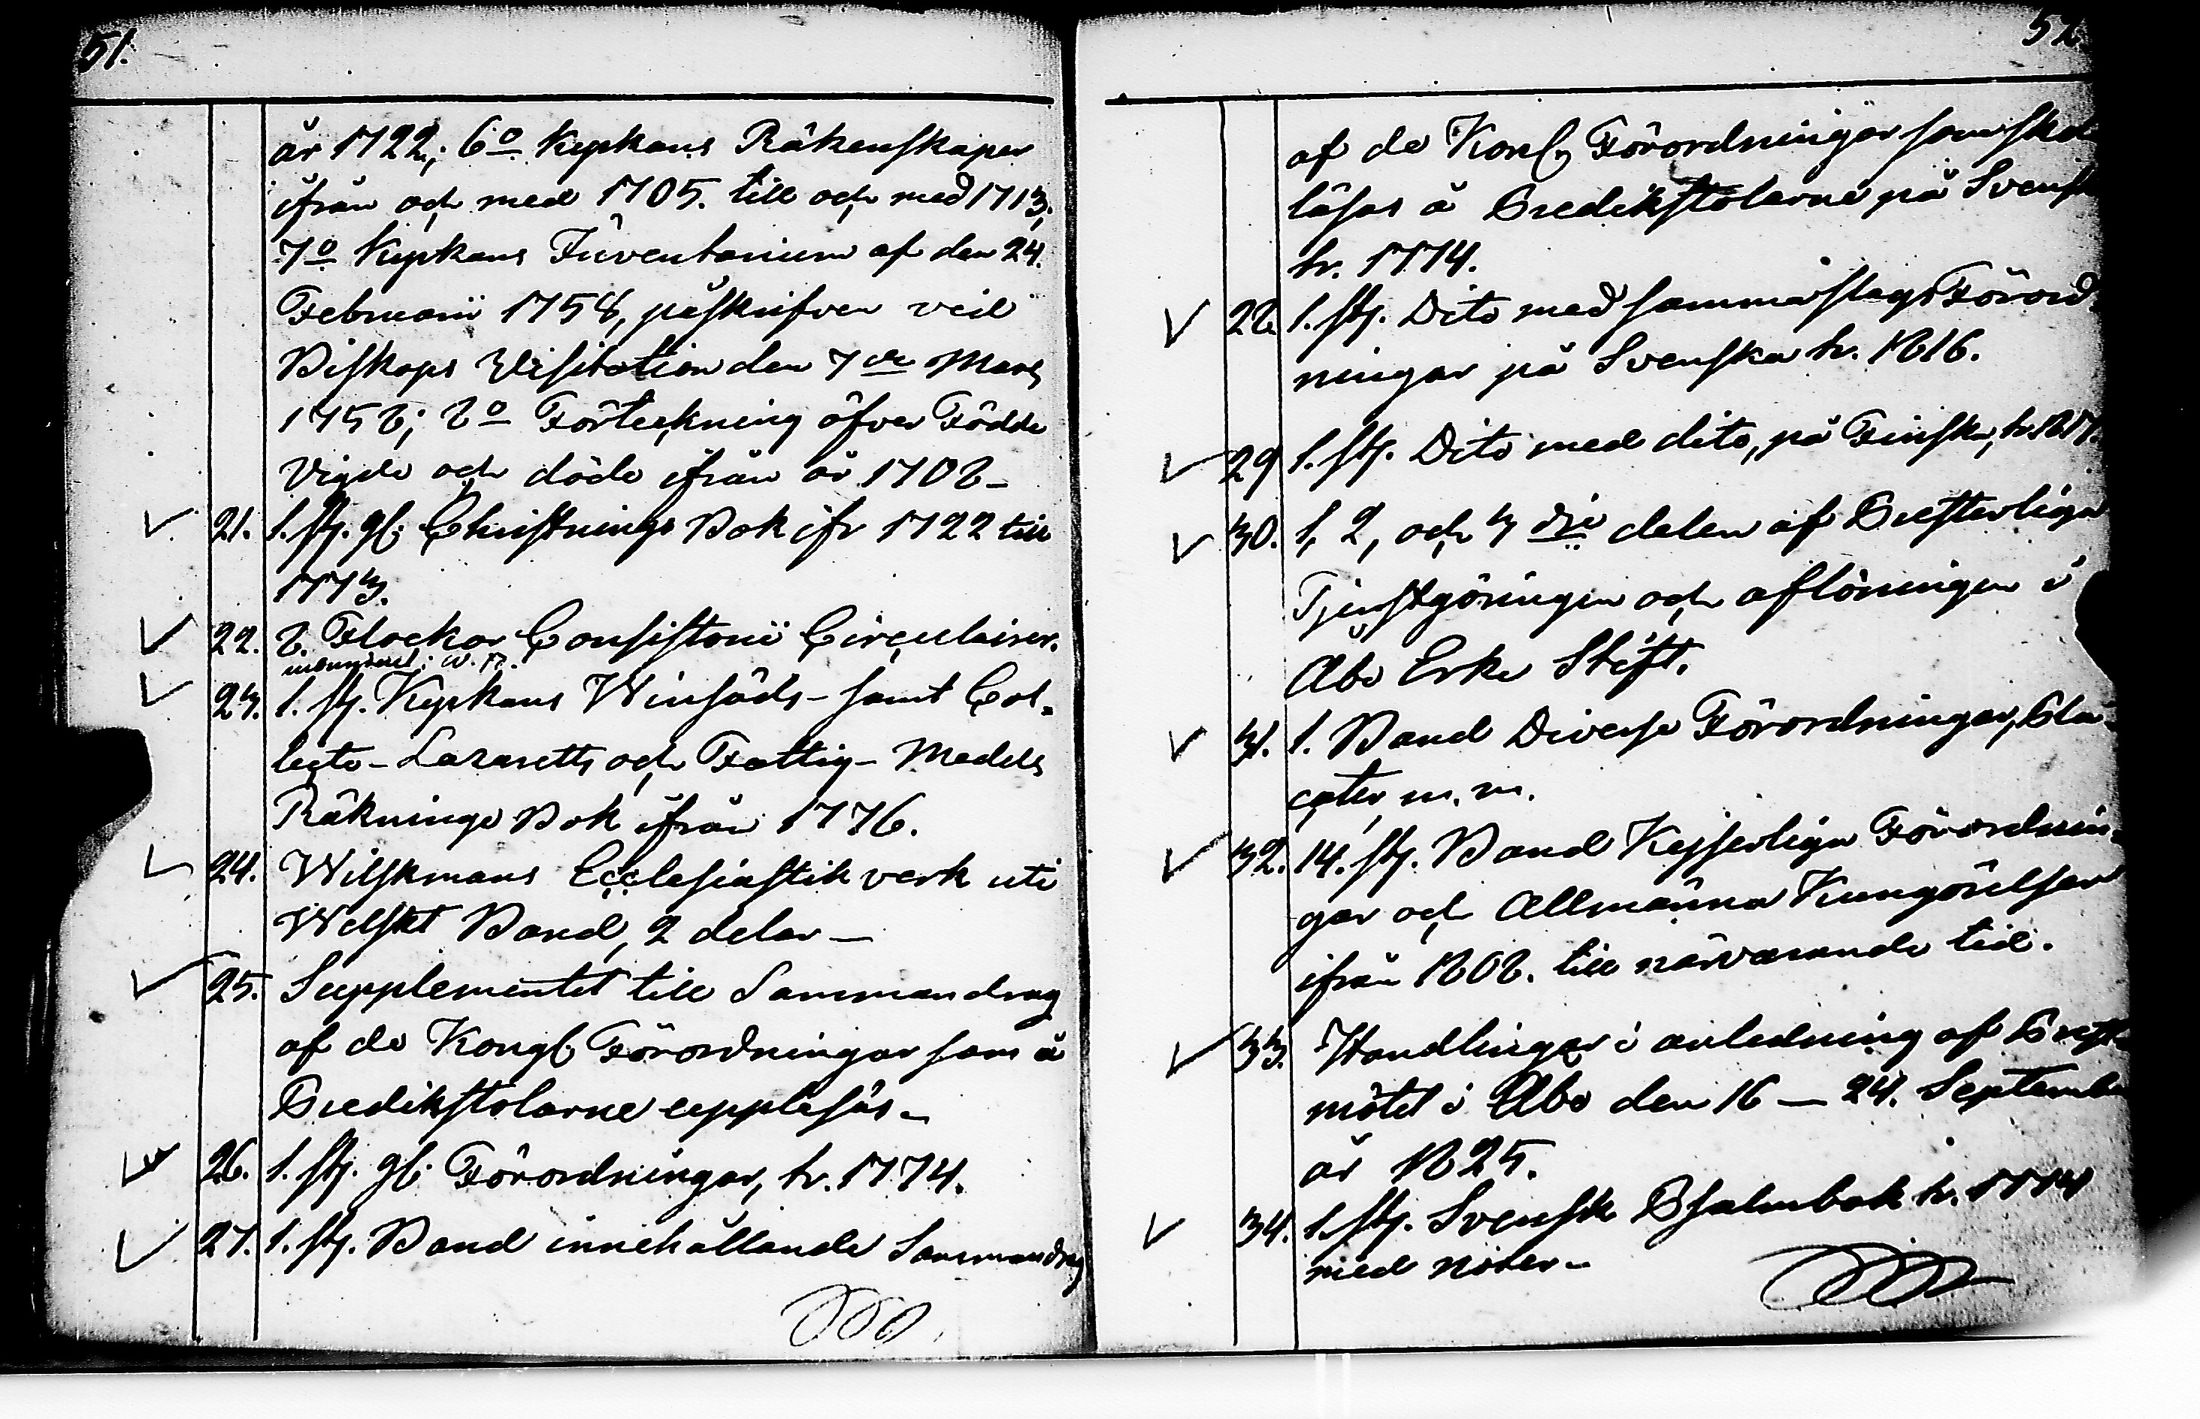 51.
år 1722; 6o Kyrkans Räkenskaper
ifrån och med 1705. till och med 1713;
7o Kyrkans Inventarium af den 24.
Februarii 1758, påskrifven vid
Biskops Visitation den 7de Mars
1758; 8o Förteckning öfver Födde
Vigde och döde ifrån år 1708 –
21. 1. st. gl: Christnings Bok ifr 1722 till
1773.
22. 8. Flockor Consistorii Circulairer.
23. 1. st. Kyrkans Winsäds – samt Col-
lecte – Lazaretts och Fattig – Medels
Räkninge Bok ifrån 1776.
24. Wilskmans Ecclesiastik verk uti
Welskt Band, 2 delar –
25. Supplementet till Sammandrag
af de Kongl Förordningar som å
Predikstolarne uppläsas –
26. 1. st. gl: Förordningar, tr. 1774.
27. 1. st. Band innehållande Sammandrag
52.
af de Kongl Förordningar som skol
läsas å Predikstolarne på Svensk
tr. 1774.
28. 1. st. Dito med samma slags Förord-
ningar på Svenska tr. 1816.
29. 1. st. Dito med dito, på Finska, tr. 1817.
30. 1, 2, och 3dje delen af Presterliga
Tjenstgöringen och aflöningen i
Åbo Erke Stift.
31. 1. Band Diverse Förordningar, Pla-
cater m. m.
32. 14. st. Band Kejserliga Förordnin-
gar och Allmänna Kungörelser
ifrån 1808. till närvarande tid.
33. Handlingar i anledning af Prest-
mötet i Åbo den 16 – 24. September
år 1825.
34. 1. st. Svensk Psalmbok tr. 1774
med Noter –